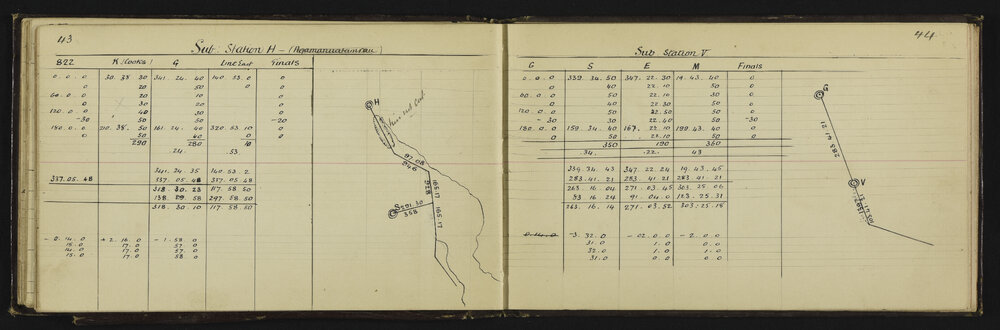 43
Sub: Station H -
822 K (Cooks) G Line East Finals
0. 0. 0 30. 38. 30 341. 24. 40 140. 53. 0 0
0 20 50 0 0
60. 0. 0 20 10 0
0 30 20 0
120. 0. 0 40 30 0
-30 50 50 -20
180. 0. 0 210. 38. 30 161. 24. 40 320. 53. 10 0
0 50 40 0 0
290 280 10
24. .53
341. 24. 35 140. 53. 2
337. 05. 48 337. 05. 48 337. 05. 48
318. 30. 23 117. 58. 50
138. 29. 58 297. 58. 50
318. 30. 10 117. 58. 50
- 0. 14. 0 + 2. 16. 0 - 1. 58. 0
15. 0 17. 0 57. 0
14. 0 17. 0 57. 0
15. 0 17. 0 58. 0
H
97. 08
946
105. 17
928
105. 17
S
291. 30
358
44
Sub Station V
G S E M Finals
0. 0. 0 339. 34. 50 347. 22. 30 19. 43. 40 0
0 40 22. 10 50 0
60. 0. 0 50 22. 10 30 0
0 40 22. 30 50 0
120. 0. 0 50 22. 50 50 0
- 30 30 22. 40 50 -30
180. 0. 0 159. 34. 40 167. 22. 10 199. 43. 40 0
0 50 22. 10 50 0
350 190 360
.34. .22. 43
339. 34. 43 347. 22. 24 19. 43. 45
283. 41. 21 283. 41. 21 283. 41. 21
263. 16. 04 271. 03. 45 303. 25. 06
83. 16. 24 91. 04. 0 123. 25. 31
263. 16. 14 271. 03. 52 303. 25. 18
0. 14. 0 -3. 32. 0 - 02. 0. 0 - 2. 0. 0
31. 0 1. 0 0. 0
32. 0 1. 0 0. 0
31. 0 0. 0 0. 0
G
283. 41. 21
V
105. 17